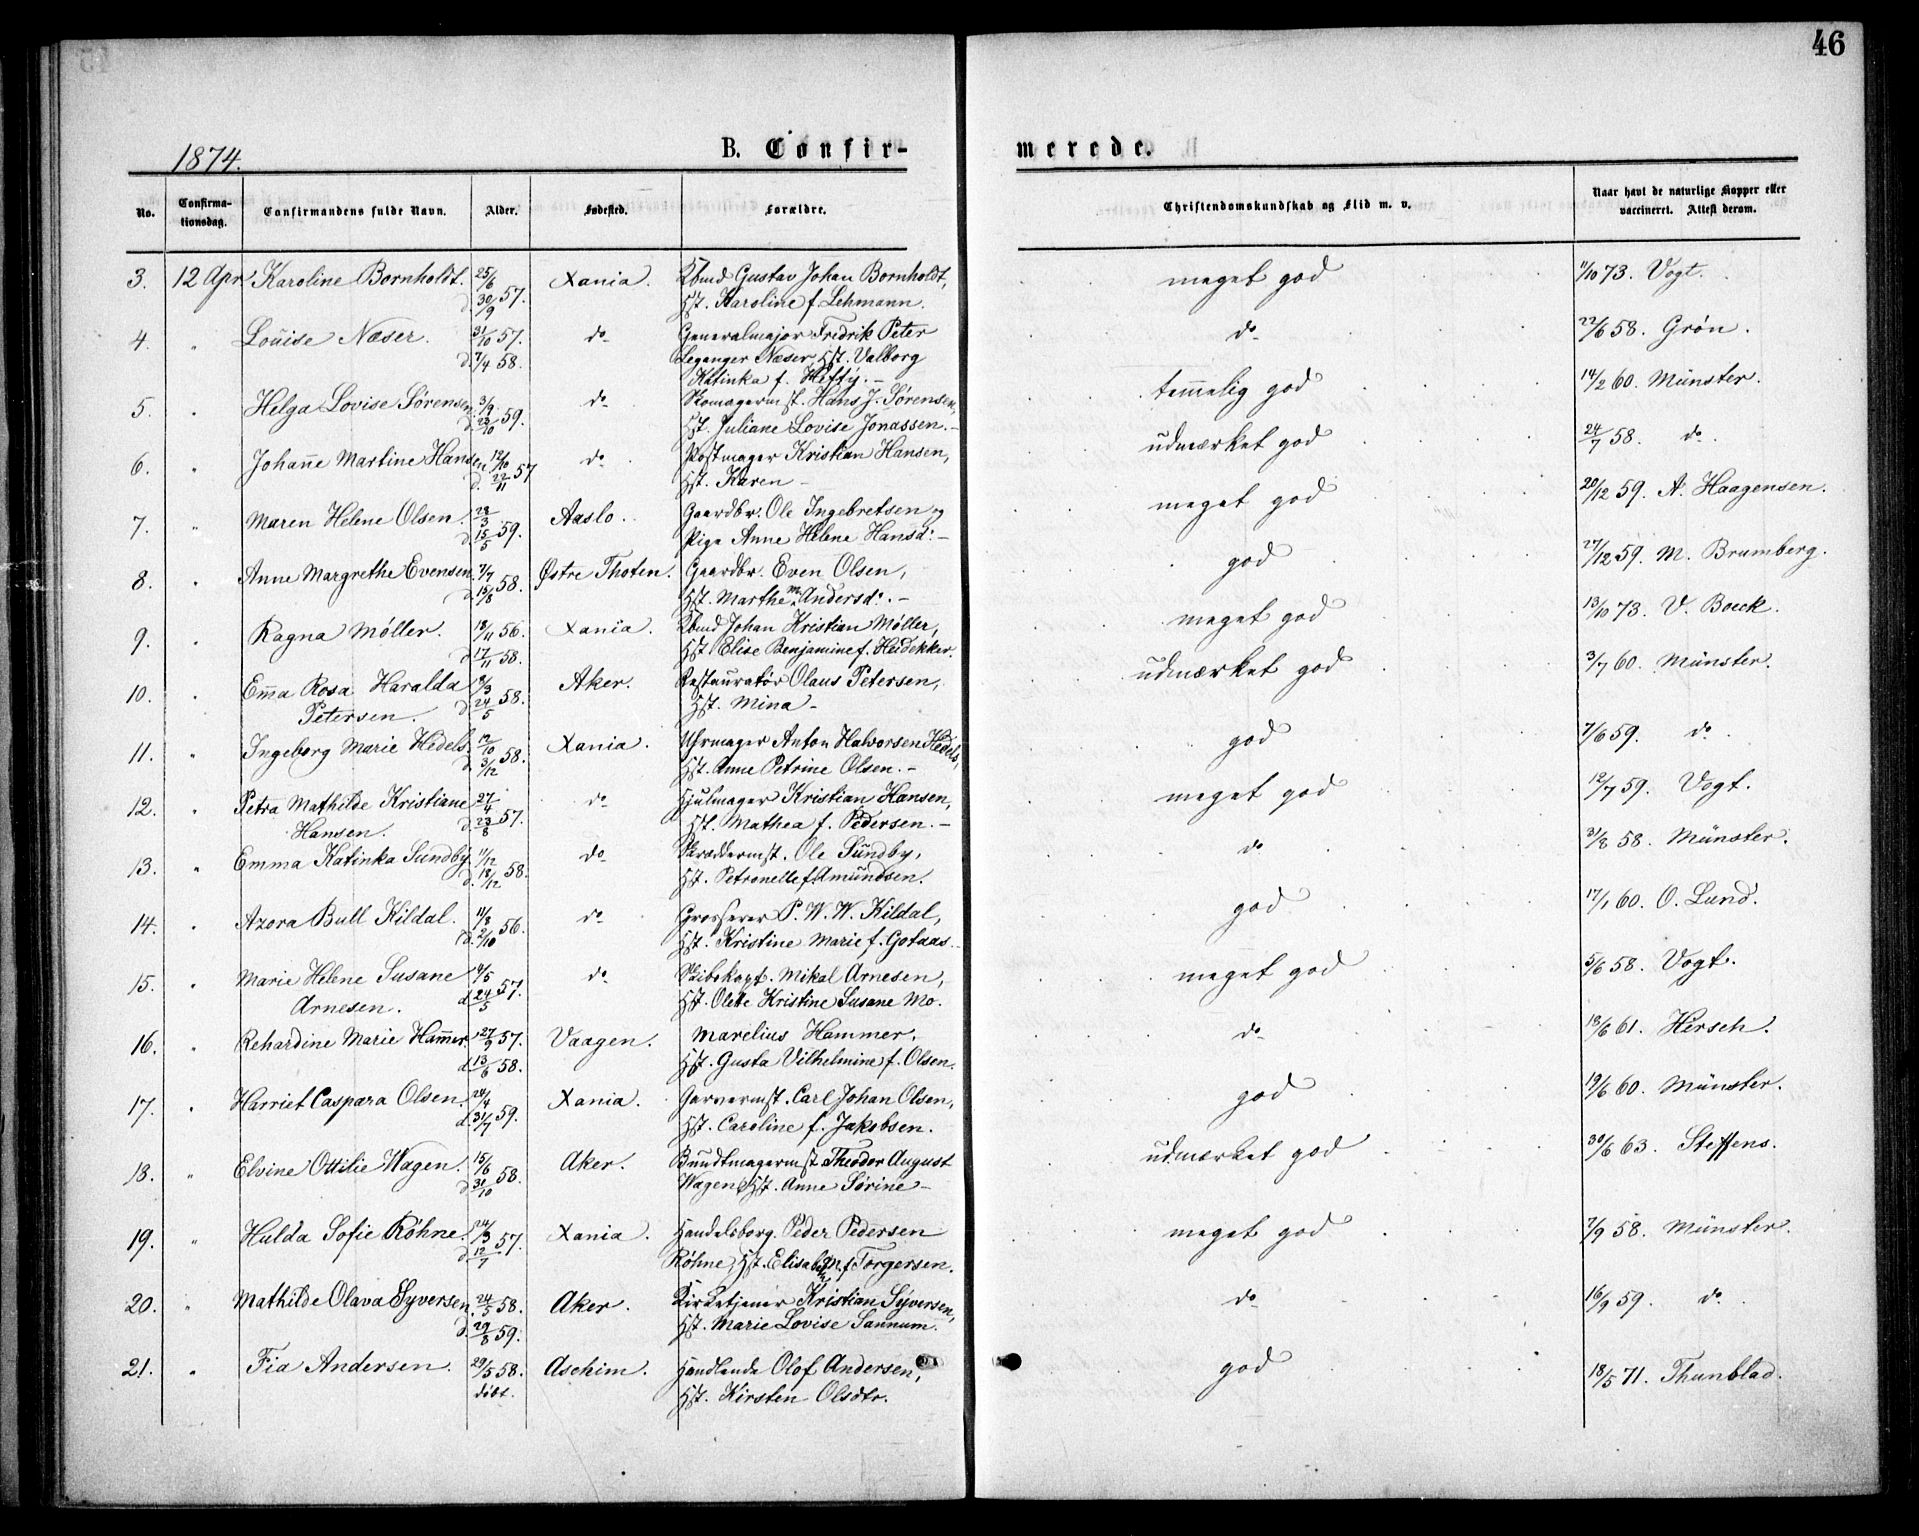 46
1874.
B. Confir-
merede.
No.
Confirma-
tionsdag.
Confirmandens fulde Navn.
Alder.
Fødested.
Forældre.
Christendomskundskab og Flid m. v.
Naar havt de naturlige Kopper eller
vaccineret. Attest derom.
3. 12 Apr Karoline Bornholdt. 25/6 Xania. Kbmd Gustav Johan Bornholdt, meget god 11/10 73. Vogt.
d. 30/9 57. Hst. Karoline f. Lehmann.
4. " Louise Næser. 31/10 57. do Generalmajor Fredrik Peter do 22/6 58. Grøn.
d. 7/4 58. Leganger Næser, Hst. Valborg
Katinka f. Hefty. -
5. " Helga Lovise Sørensen. 3/9 do Skomagermst. Hans J. Sørensen, temmelig god 14/2 60. Münster.
d. 23/10 59. Hst. Juliane Lovise Jonassen. -
6. " Johanne Martine Hansen 12/10 do Postmager Kristian Hansen, udmærket god 24/7 58. do
d. 22/11 57 Hst. Karen -
7. " Maren Helene Olsen. 28/3 Aaslo. Gaardbr. Ole Ingebretsen og meget god 20/12 59. A. Haagensen.
d. 15/5 59. Pige Anne Helene Hansd: -
8. " Anne Margrethe Evensen 7/7 Østre Thoten. Gaardbr. Even Olsen, god 27/12 59. M. Brumberg.
d. 15/8 58. Hst. Marthe M. Andersd: -
9. " Ragna Møller. 18/11 56. Xania. Kbmd Johan Kristian Møller, meget god 13/10 73. V. Boeck.
d. 17/11 58. Hst Elise Benjamine f. Heidekker.
10. " Emma Rosa Haralda 8/3 Aker. Restauratør Olaus Petersen, udmærket god 3/7 60. Münster.
Petersen. d. 24/5 58. Hst. Mina -
11. " Ingeborg Marie Hedels. 12/10 Xania. Uhrmager Anton Halvorsen Hedels, god 7/6 59. do
d. 3/12 58. Hst. Anne Petrine Olsen. -
12. " Petra Mathilde Kristiane 27/4 do Hjulmager Kristian Hansen, meget god 12/7 59. Vogt.
Hansen. d. 23/8 57. Hst. Mathea f. Pedersen. -
13. " Emma Katinka Sundby 11/12 do Skræddermst. Ole Sundby, do 31/8 58. Münster.
d. 18/12 58. Hst. Petronelle f. Amundsen.
14. " Azora Bull Kildal. 11/8 do Grosserer P. W. W. Kildal, god 17/1 60. O. Lund.
d. 2/10 56. Hst. Kristine Marie f. Gotaas.
15. " Marie Helene Susane 4/5 do Skibskapt. Mikal Arnesen, meget god 5/6 58. Vogt.
Arnesen. d. 24/5 57. Hst. Olette Kristine Susane Mo.
16. " Rehardine Marie Hammer. 27/9 57. Vaagen. Marelius Hammer, do 18/6 61. Hersch.
d. 13/6 58. Hst. Gusta Vilhelmine f. Olsen.
17. " Harriet Caspara Olsen. 24/4 Xania. Garvermst. Carl Johan Olsen, god 19/6 60. Münster.
d. 31/7 59. Hst. Caroline f. Jakobsen.
18. " Elvine Ottilie Wagen. 15/6 Aker. Bundtmagermst Theodor August udmærket god 30/6 63. Steffens.
d. 31/10 58. Wagen, Hst. Anne Sørine -
19. " Hulda Sofie Røhne. 24/3 Xania. Handelsborg. Peder Pedersen meget god 7/9 58. Münster.
d. 12/7 57. Røhne, Hst. Elisabeth M. f. Torgersen.
20. " Mathilde Olava Syversen. 24/5 58. Aker. Kirketjener Kristian Syversen, do 16/9 59. do
d. 29/8 59. Hst. Marie Lovise Sannum.
21. " Fia Andersen. 29/5 58. Aschim. Handlende Olof Andersen, god 18/5 71. Thunblad.
döbt. Hst. Kirsten Olsdtr.